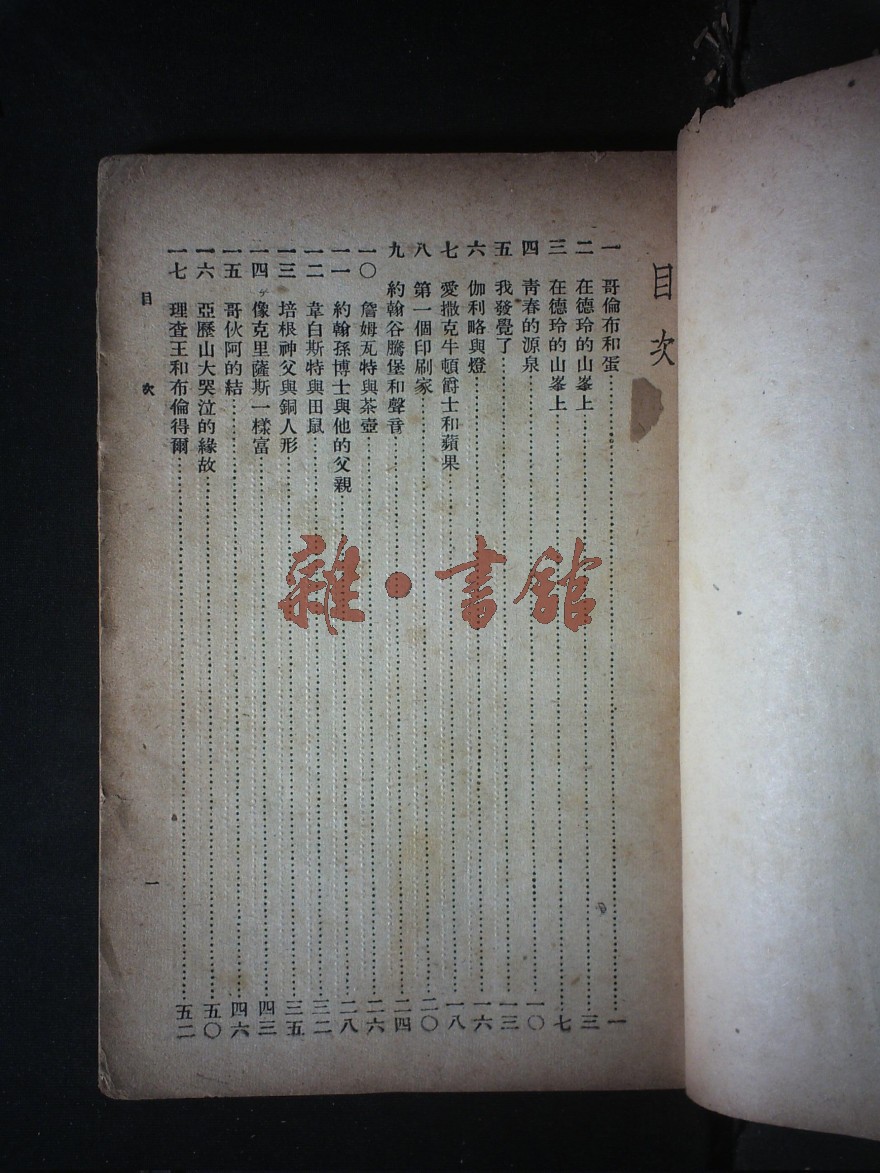 目次
一 哥倫布和蛋……一
二 在德玲的山峯上……三
三 在德玲的山峯上……七
四 靑春的源泉……一〇
五 我發覺了……一三
六 伽利略與燈……一六
七 愛撒克牛頓爵士和蘋果……一八
八 第一個印刷家……二〇
九 約翰谷騰堡和聲音……二四
一〇 詹姆瓦特與茶壺……二六
一一 約翰孫博士與他的父親……二八
一二 韋白斯特與田鼠……三二
一三 培根神父與銅人形……三五
一四 像克里薩斯一樣富……四三
一五 哥伙阿的結……四六
一六 亞歷山大哭泣的緣故……五〇
一七 理查王和布倫得爾……五二
目次 一
雜·書館